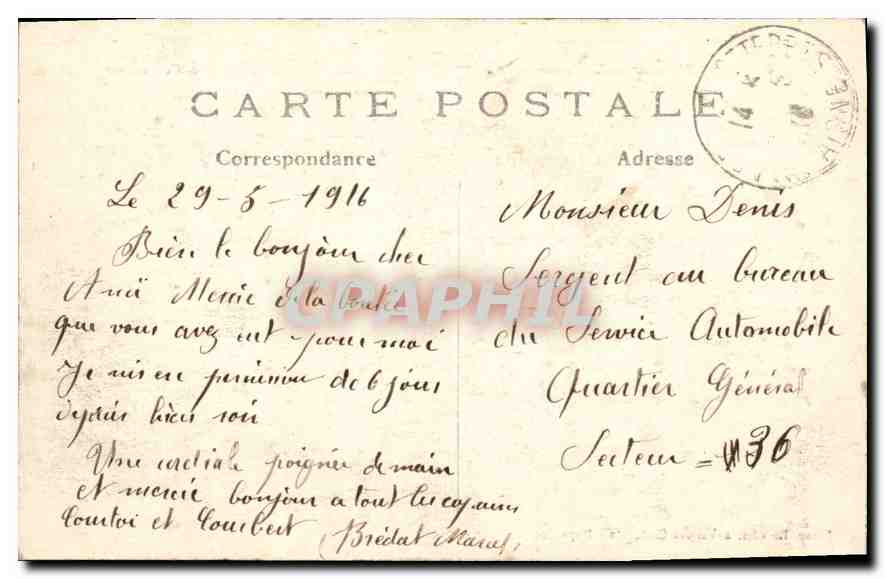 CARTE POSTALE
Correspondance
Le 29-5-1916
Bien le bonjour cher
Ami Mercie de la bontée
que vous avez eut pour moi
Je suis en permission de 6 jours
depuis hier soir
Une cordiale poignée de main
et mercie bonjour a tout les copains
Courtoi et Combert
Brédat Marcel
Adresse
Monsieur Denis
Sergent au bureau
du Service Automobile
Quartier Général
Secteur = 36
CPAPHIL